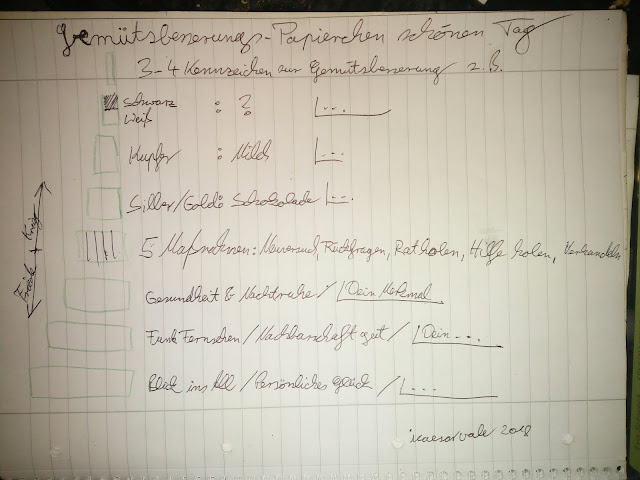 Gemütsbesserungs-Papierchen schönen Tag
3-4 Kennzeichen zur Gemütsbesserung z.B.
Schwarz : ? ...
Weiß
Kupfer : Milch ...
Silber/Gold: Schokolade ...
5 Maßnahmen: Neuversuch, Rückfragen, Rat holen, Hilfe holen, Verhandeln
Gesundheit & Nachtruhe / Dein Merkmal
Funk Fernsehen / Nachbarschaft gut / Dein ...
Blick ins All / Persönliches Glück / ...
Friede + Krieg
ikaesarvale 2018